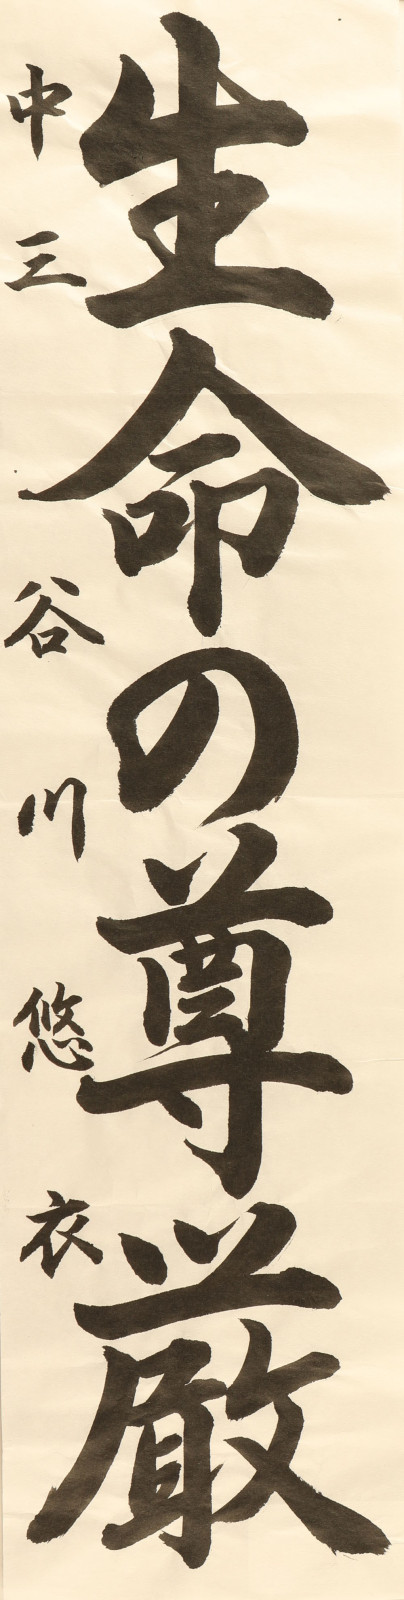 生命の尊厳
中三 谷川悠衣